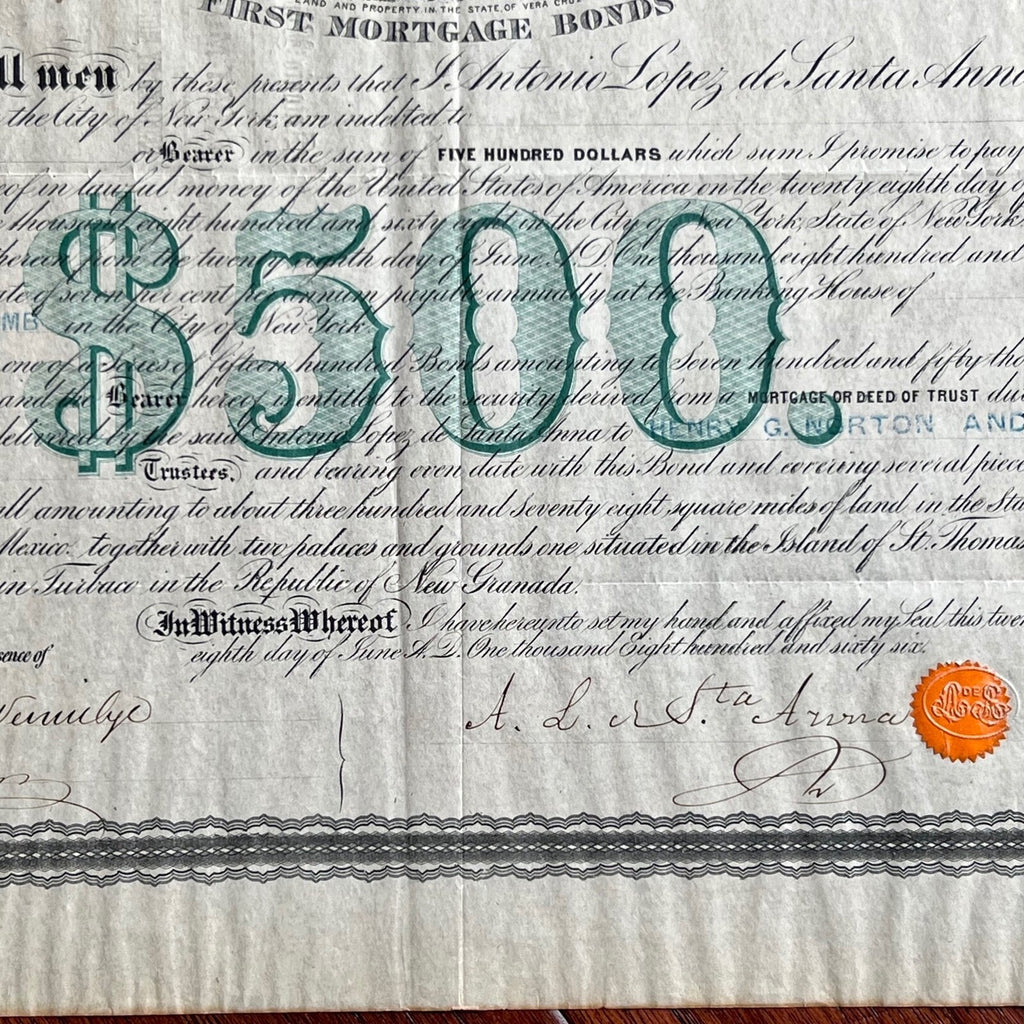 LAND AND PROPERTY IN THE STATE OF VERA CRUZ
FIRST MORTGAGE BONDS
ll men by these presents that I Antonio Lopez de Santa Anna
the City of New York, am indebted to
or Bearer in the sum of FIVE HUNDRED DOLLARS which sum I promise to pay
eof in lawful money of the United States of America on the twenty eighth day o
thousand eight hundred and sixty eight in the City of New York, State of New York
herein from the twenty eighth day of June A.D. One thousand eight hundred and
ate of seven per cent per annum payable annually at the Banking House of
MB in the City of New York
one of a Series of fifteen hundred Bonds amounting to Seven hundred and fifty tho
and the Bearer hereof is entitled to the security derived from a MORTGAGE OR DEED OF TRUST du
delivered by the said Antonio Lopez de Santa Anna to HENRY G. NORTON AND
$500.
Trustees, and bearing even date with this Bond and covering several piece
all amounting to about three hundred and seventy eight square miles of land in the Sta
Mexico. together with two palaces and grounds one situated in the Island of St. Thomas
in Turbaco in the Republic of New Granada.
In Witness Whereof I have hereunto set my hand and affixed my Seal this twen
eighth day of June A.D. One thousand Eight hundred and sixty six.
sence of
A. L. de S.ta Anna